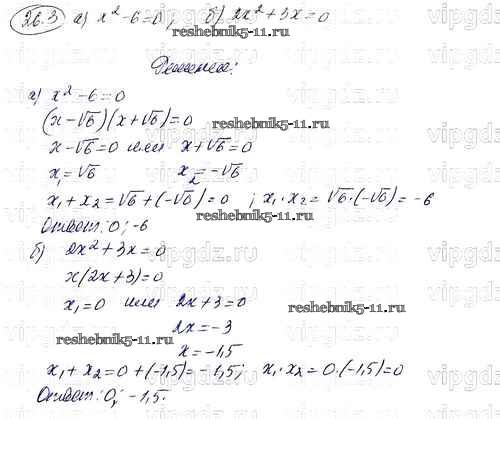 26.3 а) x² - 6 = 0; б) 2x² + 3x = 0
Решение:
а) x² - 6 = 0
(x - √6)(x + √6) = 0
reshebnik5-11.ru
x - √6 = 0 или x + √6 = 0
x₁ = √6 x₂ = -√6
x₁ + x₂ = √6 + (-√6) = 0 ; x₁ · x₂ = √6 · (-√6) = -6
reshebnik5-11.ru
Ответ: 0; -6
б) 2x² + 3x = 0
x(2x + 3) = 0
x₁ = 0 или 2x + 3 = 0
reshebnik5-11.ru
2x = -3
reshebnik5-11.ru
x = -1,5
x₁ + x₂ = 0 + (-1,5) = -1,5; x₁ · x₂ = 0 · (-1,5) = 0
Ответ: 0; -1,5.
vipgdz.ru